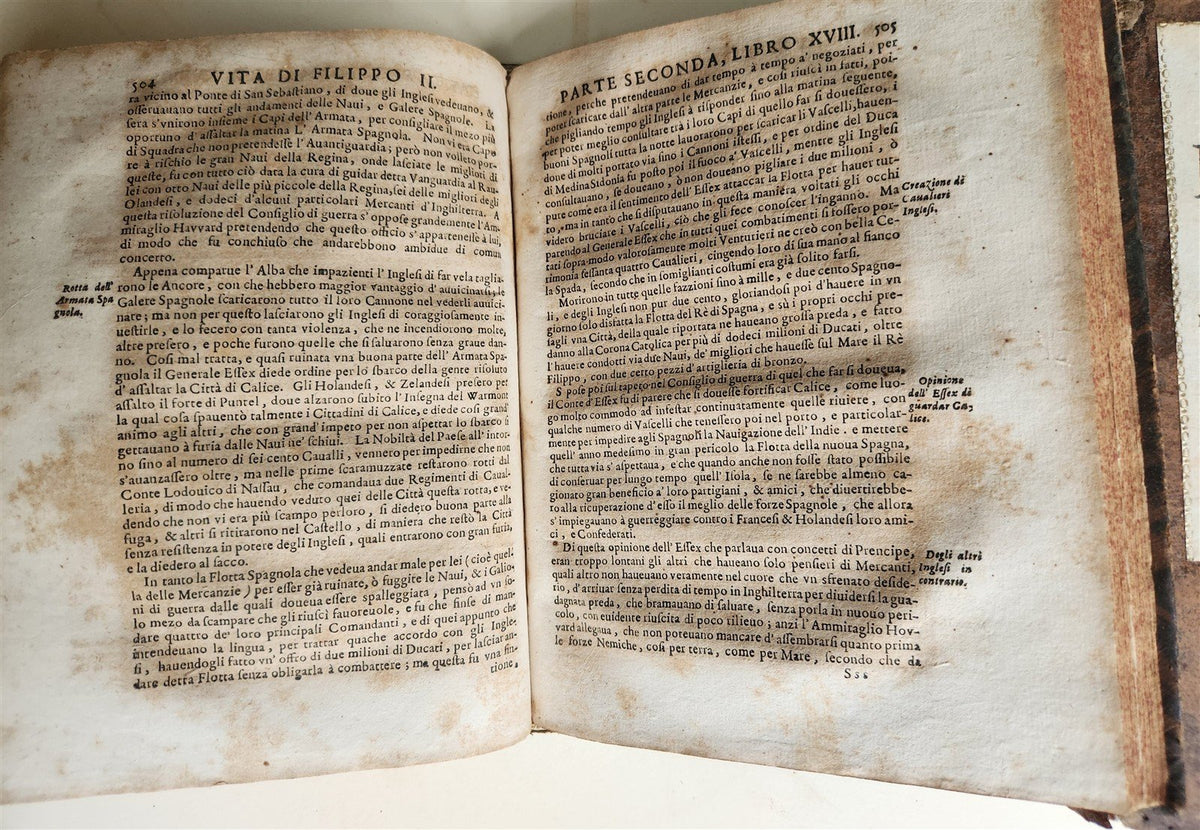 504
VITA DI FILIPPO II.
ra vicino al Ponte di San Sebastiano, di doue gli Inglesi vedeuano, &
osseruauano tutti gli andamenti delle Naui, e Galere Spagnole. La
sera s'vnirono insieme i Capi dell'Armata, per consigliare il mezo più
oportuno d'assaltar la matina L'Armata Spagnola. Non vi era Capo
di Squadra che non pretendesse l'Auantiguardia; però non volleto por-
re à rischio le gran Naui della Regina, onde lasciate le migliori di
queste, fu con tutto ciò data la cura di guidar detta Vanguardia al Rau-
lei con otto Naui delle più picole della Regina, sei delle migliori degli
Olandesi, e dodeci d'alcuni particolari Mercanti d'Inghilterra. A
questa risoluzione del Consiglio di guerra s'oppose grandemente l'Am-
miraglio Havvard pretendendo che questo officio s'appartenesse à lui,
di modo che fu conchiuso che andarebbono ambidue di comun
concerto.
Appena comparue l'Alba che impazienti l'Inglesi di far vela taglia-
Rotta dell'
Armata Spa
gnola.
rono le Ancore, con che hebbero maggior vantaggio d'auuicinarsi; le
Galere Spagnole scaricarono tutto il loro Cannone nel vederli auuici-
nate; ma non per questo lasciarono gli Inglesi di coraggiosamente in-
uestirle, e lo fecero con tanta violenza, che ne incendiorono molte,
altre presero, e poche furono quelle che si saluarono senza graue dan-
no. Cosi mal tratta, e quasi ruinata vna buona parte dell'Armata Spa-
gnola il Generale Essex diede ordine per lo sbarco della gente risoluto
d'assaltar la Città di Calice. Gli Holandesi, & Zelandesi presero per
assalto il forte di Puntel, doue alzarono subito l'Insegna del Warmont
la qual cosa spauentò talmente i Cittadini di Calice, e diede cosi grand'
animo agli altri, che con grand'impeto per non aspettar lo sbarco si
gettauano à furia dalle Naui ne' schiui. La Nobiltà del Paese all'intor-
no sino al numero di sei cento Caualli, vennero per impedirne che non
s'auanzassero oltre, ma nelle prime scaramuzzate restarono rotti dal
Conte Lodouico di Nassau, che comandaua due Regimenti di Caual-
leria, di modo che hauendo veduto quei delle Città questa rotta, e ve-
dendo che non vi era più scampo perloro, si diedero buona parte alla
fuga, & altri si ritirarono nel Castello, di maniera che restò la Città
senza resistenza in potere degli Inglesi, quali entrarono con gran furia,
e la diedero al sacco.
In tanto la Flotta Spagnola che vedeua andar male per lei (cioè quel-
la delle Mercanzie) per esser già ruinate, ò fuggite le Naui, & i Galio-
ni di guerra dalle quali doueua essere spalleggiata, pensò ad vn so-
lo mezo da scampare che gli riusci fauoreuole, e fu che finse di man-
dare quattro de' loro principali Comandanti, e di quei appunto che
intendeuano la lingua, per trattar quache accordo con gli Ingle-
si, hauendogli fatto vn' offro di due milioni di Ducati, per lasciar an-
dare detta Flotta senza obligarla à combattere; ma questa fu vna fin-
tione,
PARTE SECONDA, LIBRO XVIII. 505
tione, perche pretendeuano di dar tempo à tempo a' negoziati, per
poter scaricare dall'altra parte le Mercanzie, e cosi riusci in fatti, poi-
che pigliando tempo gli Inglesi à risponder sino alla matina seguente,
per poter meglio consultare trà i loro Capi di quello far si douesse, i
buoni Spagnoli tutta la notte lauorarono per scaricar li Vascelli, hauen-
doue di molti portato via sino i Cannoni istessi, e per ordine del Duca
di Medina Sidonia fu posto poi il fuoco a' Vascelli, mentre gli Inglesi
consultauano, se doueano, ò non doueano pigliare i due milioni, ò
pure come era il sentimento dell'Essex attaccar la Flotta per hauer tut-
to, ma in tanto che si disputauano in questa maniera voltati gli occhi
videro bruciare i Vascelli, ciò che gli fece conoscer l'inganno. Ma
Creazione di
Caualieri
Inglesi.
parendo al Generale Essex che in tutti quei combatimenti si fossero por-
tati sopra modo valorosamente molti Venturieri ne creó con bella Ce-
rimonia sessanta quattro Caualieri, cingendo loro di sua mano al fianco
la Spada, secondo che in somiglianti costumi era già solito farsi.
Morirono in tutte quelle fazzioni sino à mille, e due cento Spagno-
li, e degli Inglesi non pur due cento, gloriandosi poi d'hauere in vn
giorno solo disfatta la Flotta del Rè di Spagna, e sù i propri occhi pre-
sagli vna Città, della quale riportata ne haueano grossa preda, e fatto
danno alla Corona Catolica per più di dodeci milioni di Ducati, oltre
l'hauere condotti via due Naui, de' migliori che hauesse sul Mare il Rè
Filippo, con due certo pezzi d'artiglieria di bronzo.
S pose poi sul tapeto nel Consiglio di guerra di quel che far si doueua,
il Conte d'Essex fu di parere che si douesse fortificar Calice, come luo-
Opinione
dell'Essex di
guardar Ca-
lice.
go molto commodo ad infestar continuatamente quelle riuiere, con
qualche numero di Vascelli che tenessero poi nel porto, e particolar-
mente per impedire agli Spagnoli la Nauigazione dell'Indie. e mettere
quell'anno medesimo in gran pericolo la Flotta della nuoua Spagna,
che tutta via s'aspettaua, e che quando anche non fosse stato possibile
di conseruar per lungo tempo quell'Isola, se ne sarebbe almeno ca-
gionato gran beneficio a' loro partigiani, & amici, che diuertirebbe-
ro alla ricuperazione d'esso il meglio delle forze Spagnole, che allora
s'impiegauano à guerreggiare contro i Francesi & Holandesi loro ami-
ci, e Confederati.
Di questa opinione dell'Essex che parlaua con concetti di Prencipe,
Degli altri
Inglesi in
contrario.
eran troppo lontani gli altri che haueano solo pensieri di Mercanti,
quali altro non haueuano veramente nel cuore che vn sfrenato deside-
rio, d'arriuar senza perdita di tempo in Inghilterra per diuidersi la gua-
dagnata preda, che bramauano di saluare, senza porla in nuouo peri-
colo, con euidente riuscita di poco rilieuo; anzi l'Ammiraglio Hov-
vard allegaua, che non poteuano mancare d'assembrarsi quanto prima
le forze Nemiche, cosi per terra, come per Mare, secondo che da
Sss